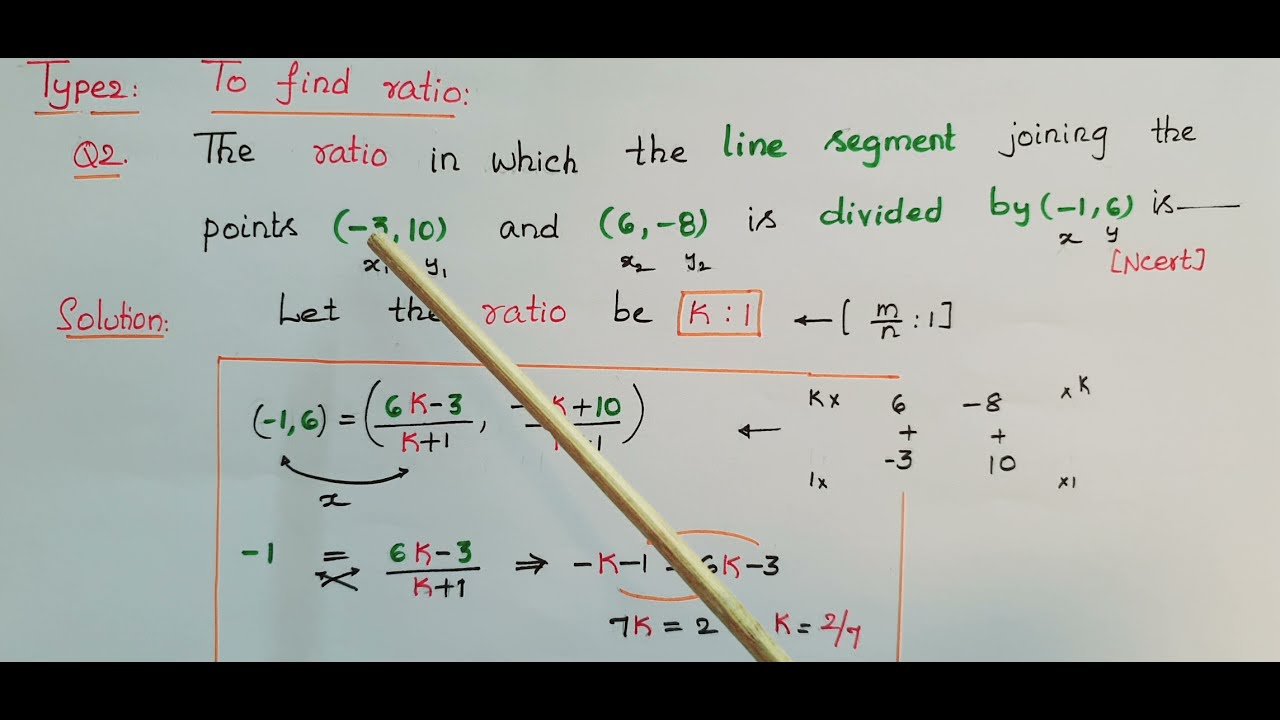 Type2: To find ratio:
Q2. The ratio in which the line segment joining the
points (-3, 10) and (6, -8) is divided by (-1, 6) is
x₁ y₁ x₂ y₂ x y
[Ncert]
Solution: Let the ratio be K : 1 ← [ m/n : 1 ]
(-1, 6) = ( 6K-3 / K+1 , K+10 )
x
← Kx 6 -8 xK
+ +
1x -3 10 x1
-1 = 6K-3 / K+1 ⇒ -K-1 6K-3
7K = 2 K = 2/7